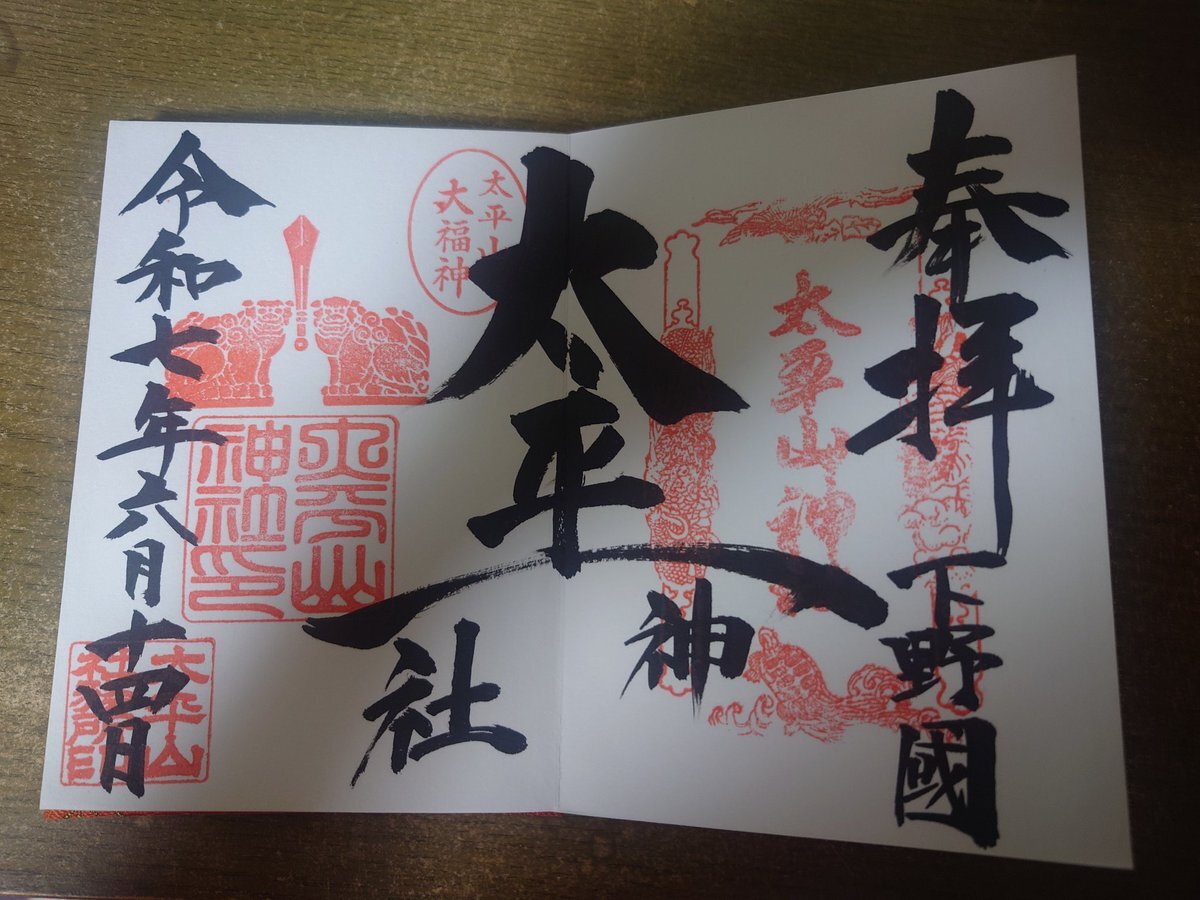 奉拝
下野國
太平山神社
太平山神
太平山
大福神
太平山
神社印
令和七年六月十四日
太平山
社務所印